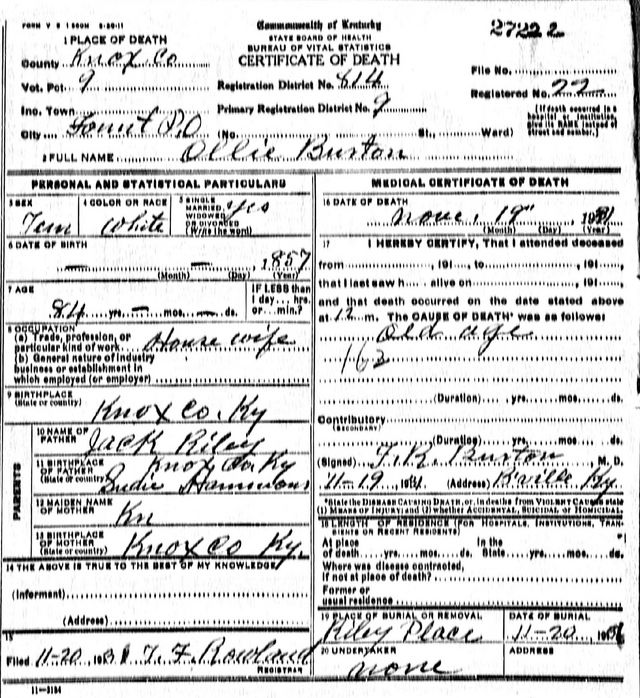 FORM V S 1
Commonwealth of Kentucky
27222
STATE BOARD OF HEALTH
BUREAU OF VITAL STATISTICS
CERTIFICATE OF DEATH
1 PLACE OF DEATH
County Knox Co
Vot. Pct 9
Inc. Town
City P.O (No. St., Ward)
Registration District No. 814
Primary Registration District No. 9
File No.
Registered No. 22
(If death occurred in a hospital or institution, give its NAME instead of street and number.)
2 FULL NAME Ollie Burton
PERSONAL AND STATISTICAL PARTICULARS
3 SEX
Fem
4 COLOR OR RACE
White
5 SINGLE, MARRIED, WIDOWED OR DIVORCED (Write the word)
yes
6 DATE OF BIRTH
— — 1857
(Month) (Day) (Year)
7 AGE
84 yrs. — mos. — ds.
IF LESS than 1 day... hrs. or... min.?
8 OCCUPATION
(a) Trade, profession, or particular kind of work House wife
(b) General nature of industry business or establishment in which employed (or employer)
9 BIRTHPLACE
(State or country)
Knox Co. Ky
PARENTS
10 NAME OF FATHER
Jack Riley
11 BIRTHPLACE OF FATHER
(State or country)
Knox Co. Ky
Hammons
12 MAIDEN NAME OF MOTHER
Kn
13 BIRTHPLACE OF MOTHER
(State or country)
Knox Co Ky.
14 THE ABOVE IS TRUE TO THE BEST OF MY KNOWLEDGE
(Informant)
(Address)
15
Filed 11-20 T. F. Rowland
REGISTRAR
11—3184
MEDICAL CERTIFICATE OF DEATH
16 DATE OF DEATH
Nove, 19"
(Month) (Day) (Year)
17 I HEREBY CERTIFY, That I attended deceased
from , 191 , to , 191 ,
that I last saw h alive on , 191 ,
and that death occurred on the date stated above
at 12 m. The CAUSE OF DEATH* was as follows:
Old age
162
(Duration) yrs. mos. ds.
Contributory
(SECONDARY)
(Duration) yrs. mos. ds.
(Signed) T. R. Burton M. D.
11-19 (Address) B'ville Ky.
*State the DISEASE CAUSING DEATH, or, in deaths from VIOLENT CAUSES state (1) MEANS OF INJURY; and (2) whether ACCIDENTAL, SUICIDAL or HOMICIDAL.
18 LENGTH OF RESIDENCE (FOR HOSPITALS, INSTITUTIONS, TRANSIENTS OR RECENT RESIDENTS)
At place of death yrs. mos. ds. In the State yrs. mos. ds.
Where was disease contracted, If not at place of death?
Former or usual residence
19 PLACE OF BURIAL OR REMOVAL
Riley Place
DATE OF BURIAL
11-20
20 UNDERTAKER
none
ADDRESS